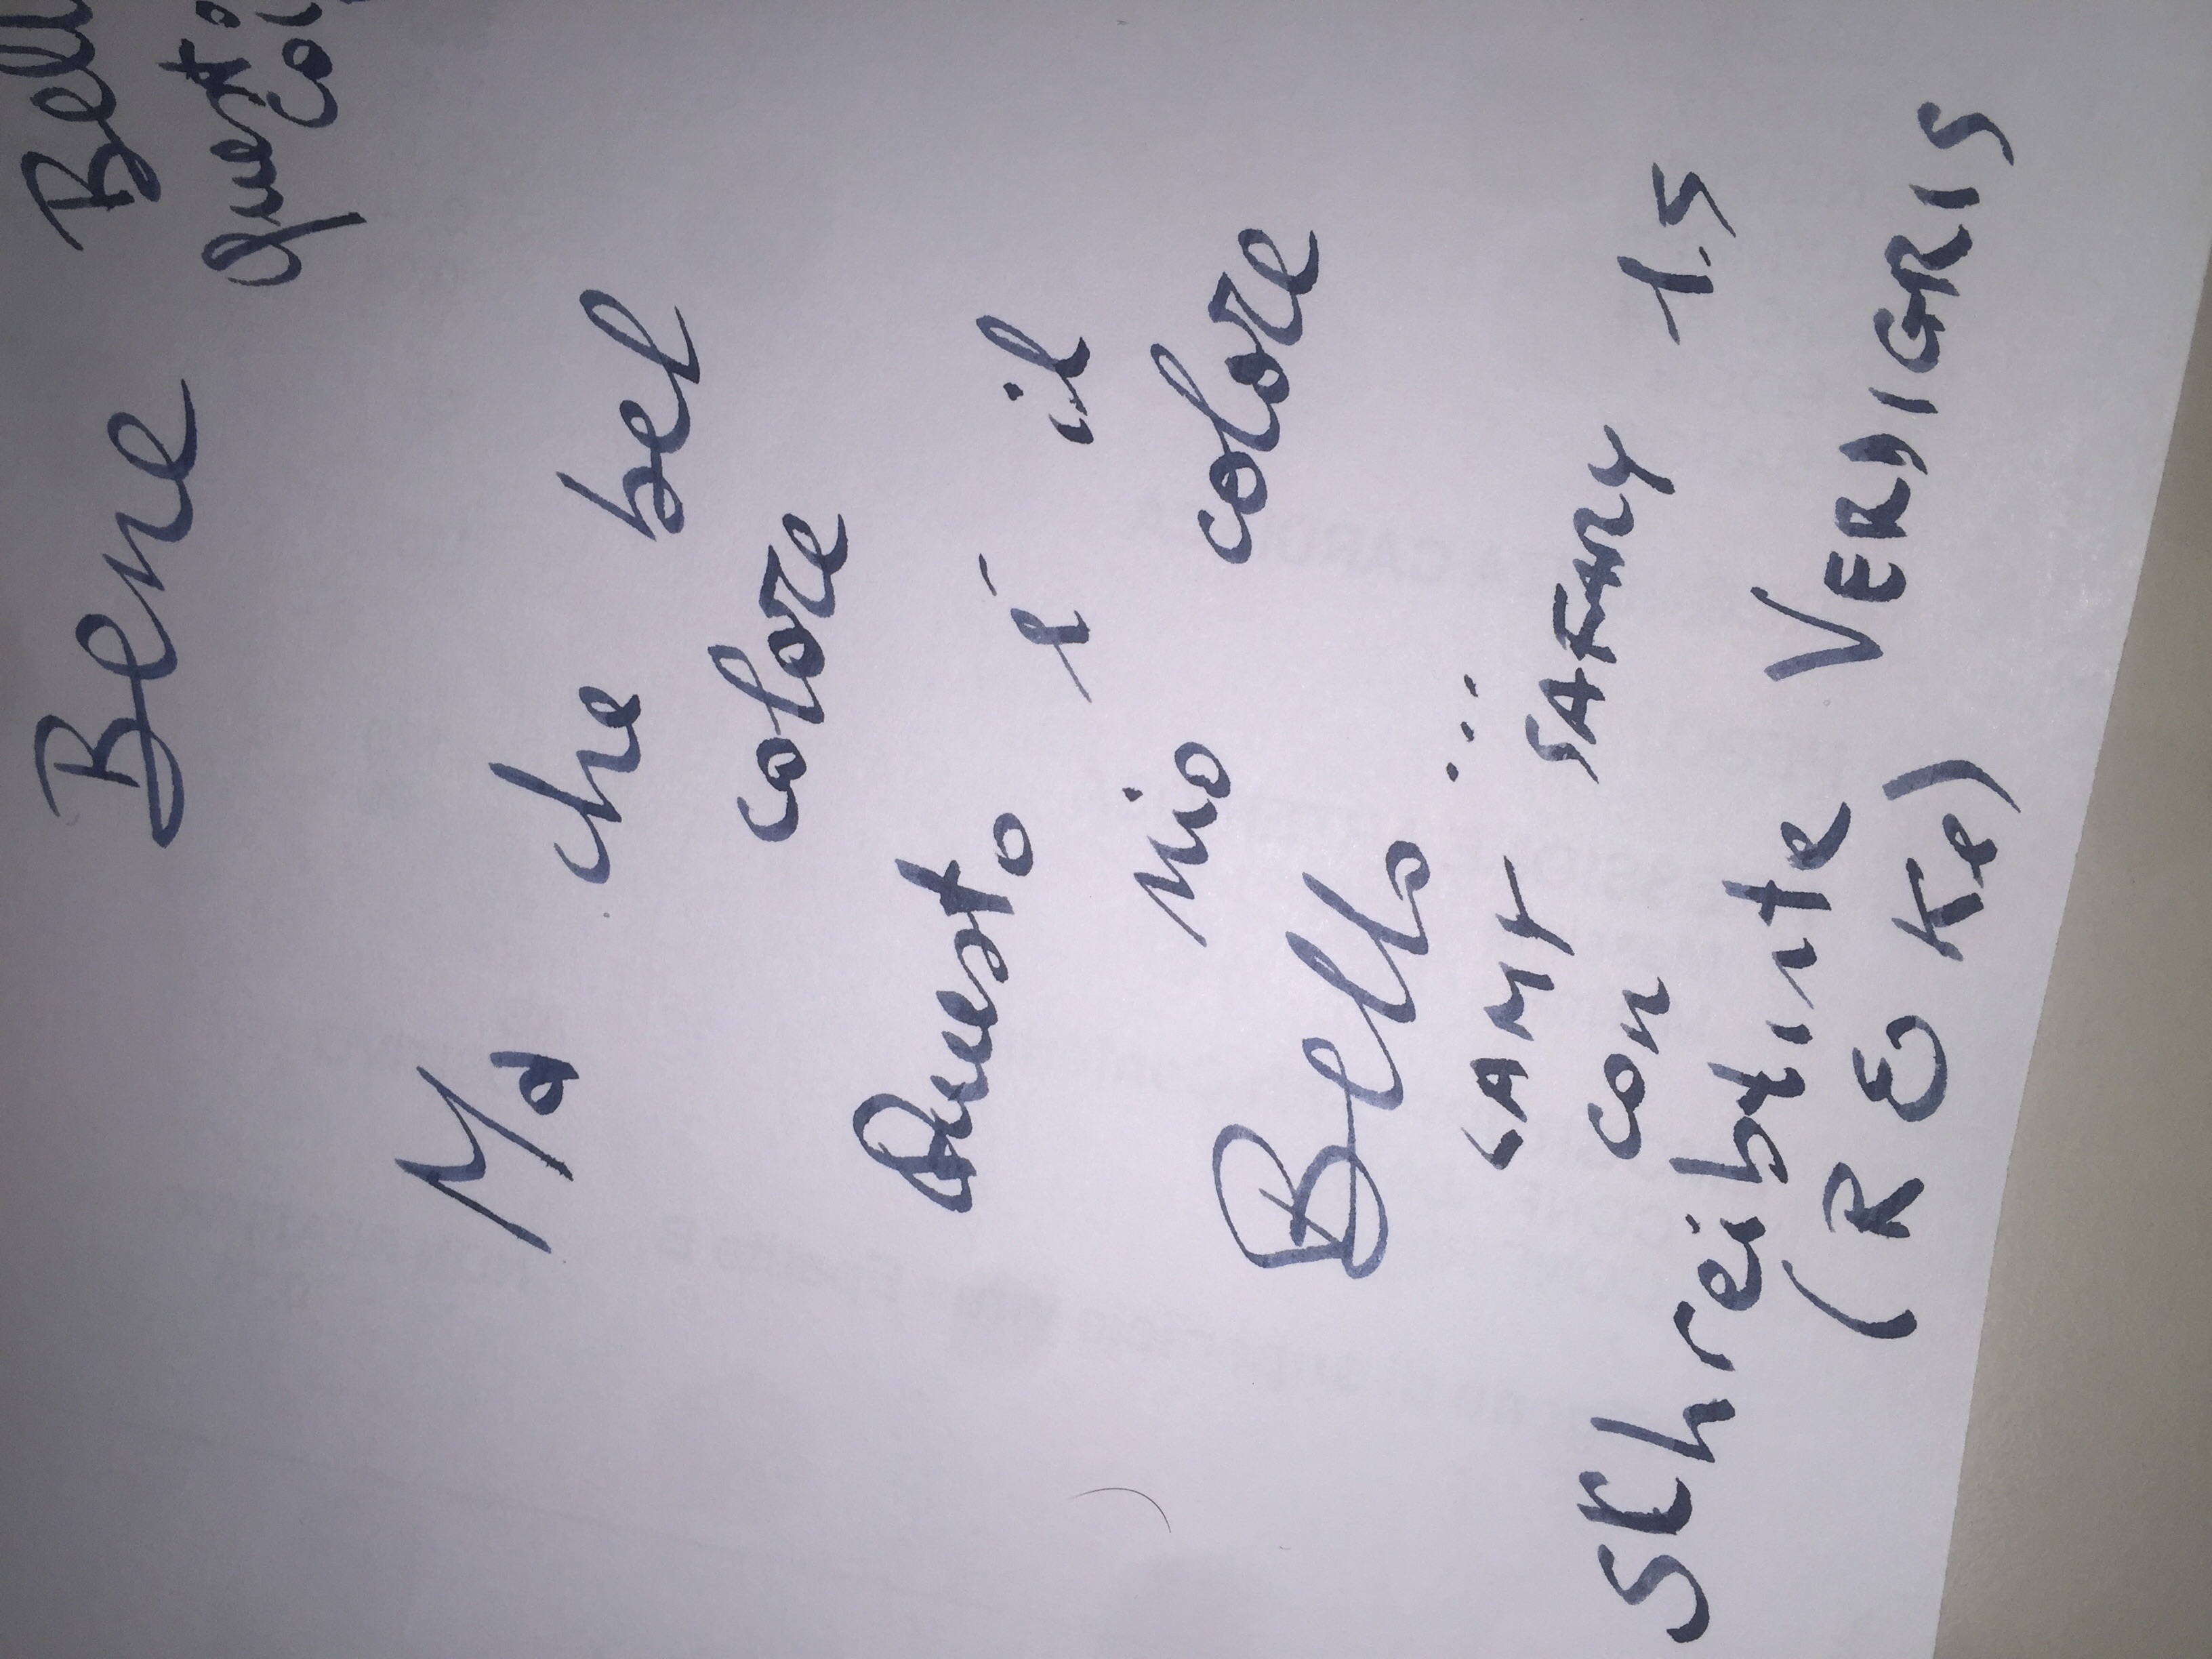 Bene Bell
questo
col
Ma che bel
colore
Questo è il
mio colore
Bello ...
LAMY SAFARY 1.5
con
SChreibtinte VERDIGRIS
(ROKe)